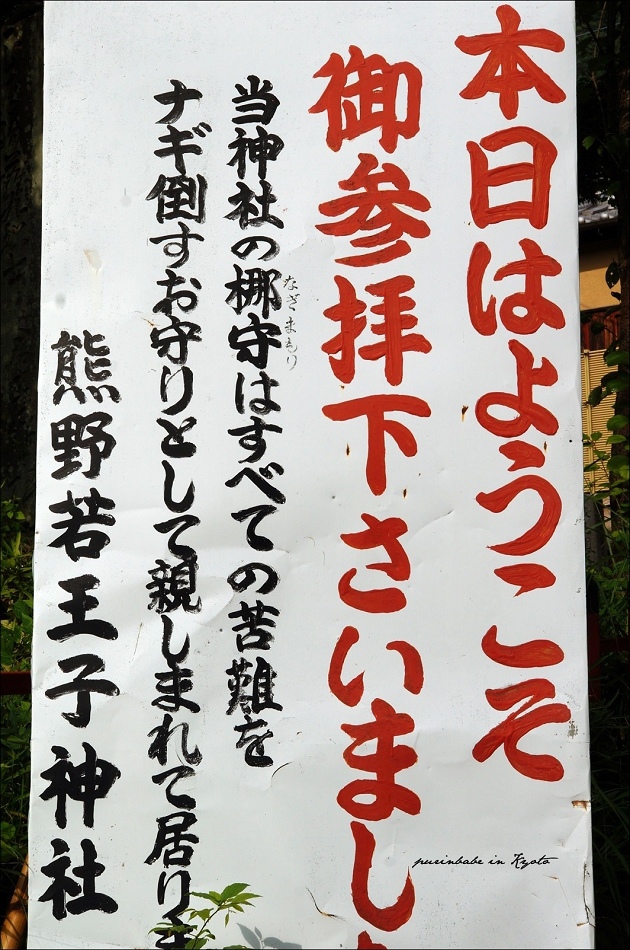 本日はようこそ
御参拝下さいまし
当神社の梛守はすべての苦難を
なぎまもり
ナギ倒すお守りとして親しまれて居りま
熊野若王子神社
purinbabe in Kyoto